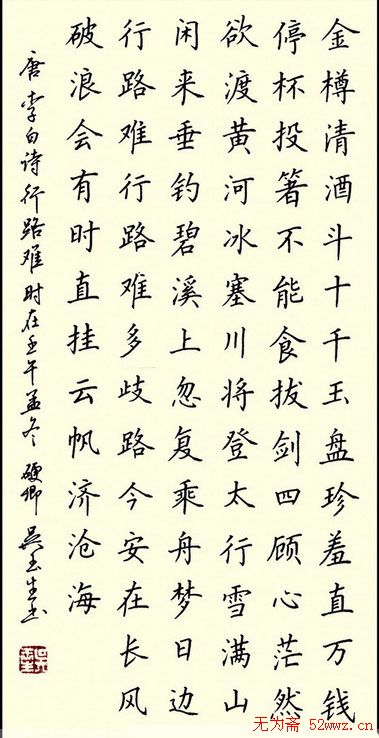 金樽清酒斗十千玉盘珍羞直万钱
停杯投箸不能食拔剑四顾心茫然
欲渡黄河冰塞川将登太行雪满山
闲来垂钓碧溪上忽复乘舟梦日边
行路难行路难多歧路今安在长风
破浪会有时直挂云帆济沧海
唐李白诗行路难时在壬午孟冬 硬卿 吴玉生书
无为斋 52wwz.cn